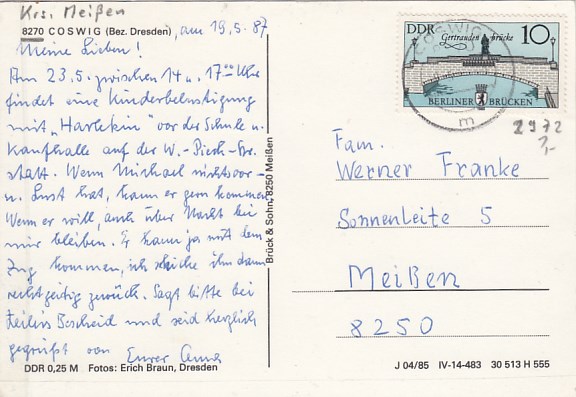 Krs. Meißen
8270 COSWIG (Bez. Dresden), am 19.5.87
Meine Lieben!
Am 23.5. zwischen 14 u. 17⁰⁰ Uhr
findet eine Kinderbelustigung
mit "Harlekin" vor der Schule u.
Kaufhalle auf der W.-Pieck-Str.
statt. Wenn Michael nichts vor-
u. Lust hat, kann er gern kommen.
Wenn er will, auch über Nacht bei
mir bleiben. Er kann ja mit dem
Zug kommen, ich schicke ihn dann
rechtzeitig zurück. Sagt bitte bei
Bescheid und seid herzlich
gegrüßt von Eurer Anna
DDR 0,25 M Fotos: Erich Braun, Dresden
Brück & Sohn, 8250 Meißen
DDR Gertraudenbrücke 10
BERLINER BRÜCKEN
COSWIG
m
2972
1,-
Fam.
Werner Franke
Sonnenleite 5
Meißen
8250
J 04/85 IV-14-483 30 513 H 555